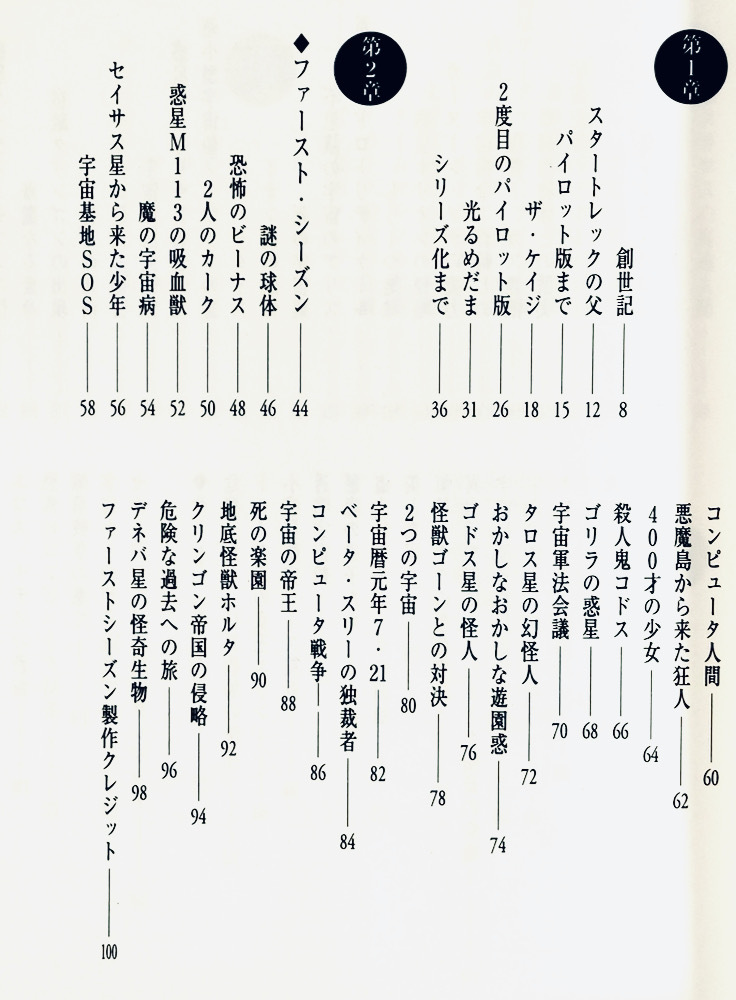 第1章
創世記 8
スタートレックの父 12
パイロット版まで 15
ザ・ケイジ 18
2度目のパイロット版 26
光るめだま 31
シリーズ化まで 36
第2章
◆ファースト・シーズン 44
謎の球体 46
恐怖のビーナス 48
2人のカーク 50
惑星M113の吸血獣 52
魔の宇宙病 54
セイサス星から来た少年 56
宇宙基地SOS 58
コンピュータ人間 60
悪魔島から来た狂人 62
400才の少女 64
殺人鬼コドス 66
ゴリラの惑星 68
宇宙軍法会議 70
タロス星の幻怪人 72
おかしなおかしな遊園惑 74
ゴドス星の怪人 76
怪獣ゴーンとの対決 78
2つの宇宙 80
宇宙暦元年7・21 82
ベータ・スリーの独裁者 84
コンピュータ戦争 86
宇宙の帝王 88
死の楽園 90
地底怪獣ホルタ 92
クリンゴン帝国の侵略 94
危険な過去への旅 96
デネバ星の怪奇生物 98
ファーストシーズン製作クレジット 100